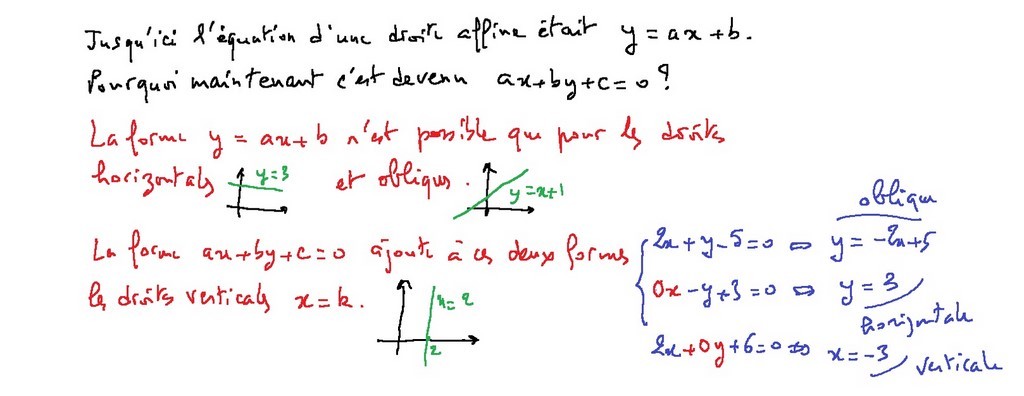 Jusqu'ici l'équation d'une droite affine était y = ax + b.
Pourquoi maintenant c'est devenu ax+by+c=0 ?
La forme y = ax + b n'est possible que pour les droites
horizontales y=3 et obliques. y=x+1
La forme ax+by+c=0 ajoute à ces deux formes
les droites verticales x=k. x=2
2
oblique
2x+y-5=0 ⇔ y=-2x+5
0x-y+3=0 ⇔ y=3
horizontale
2x+0y+6=0 ⇔ x=-3 verticale